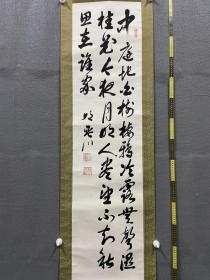 中庭地白樹棲鴉冷露無聲濕
桂花今夜月明人盡望不知秋
思在誰家